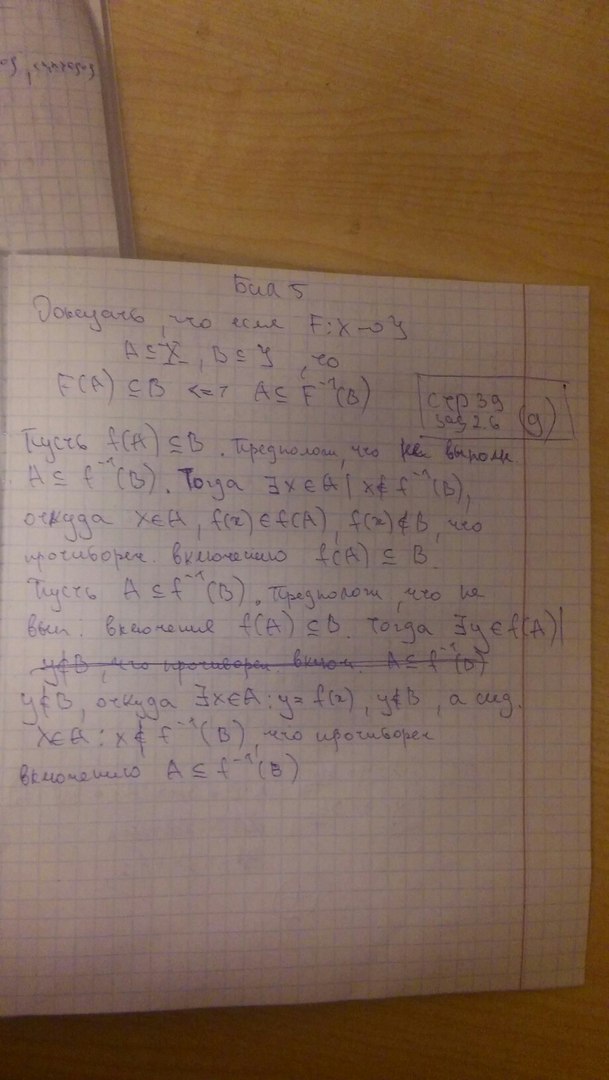 Бил 5
Доказать, что если F: X → Y
A ⊆ X, B ⊆ Y, то
F(A) ⊆ B <=> A ⊆ F⁻¹(B)
стр 39
зад 2.6 (g)
Пусть f(A) ⊆ B. Предполож, что не выполн.
A ⊆ f⁻¹(B). Тогда ∃x∈A | x∉f⁻¹(B),
откуда x∈A, f(x)∈f(A), f(x)∉B, что
противореч. включению f(A) ⊆ B.
Пусть A ⊆ f⁻¹(B). Предполож, что не
вып. включения f(A) ⊆ B. Тогда ∃y∈f(A)|
y∉B, что противореч. включ. A ⊆ f⁻¹(B)
y∉B, откуда ∃x∈A: y=f(x), y∉B, а след.
x∈A: x∉f⁻¹(B), что противореч
включению A ⊆ f⁻¹(B)